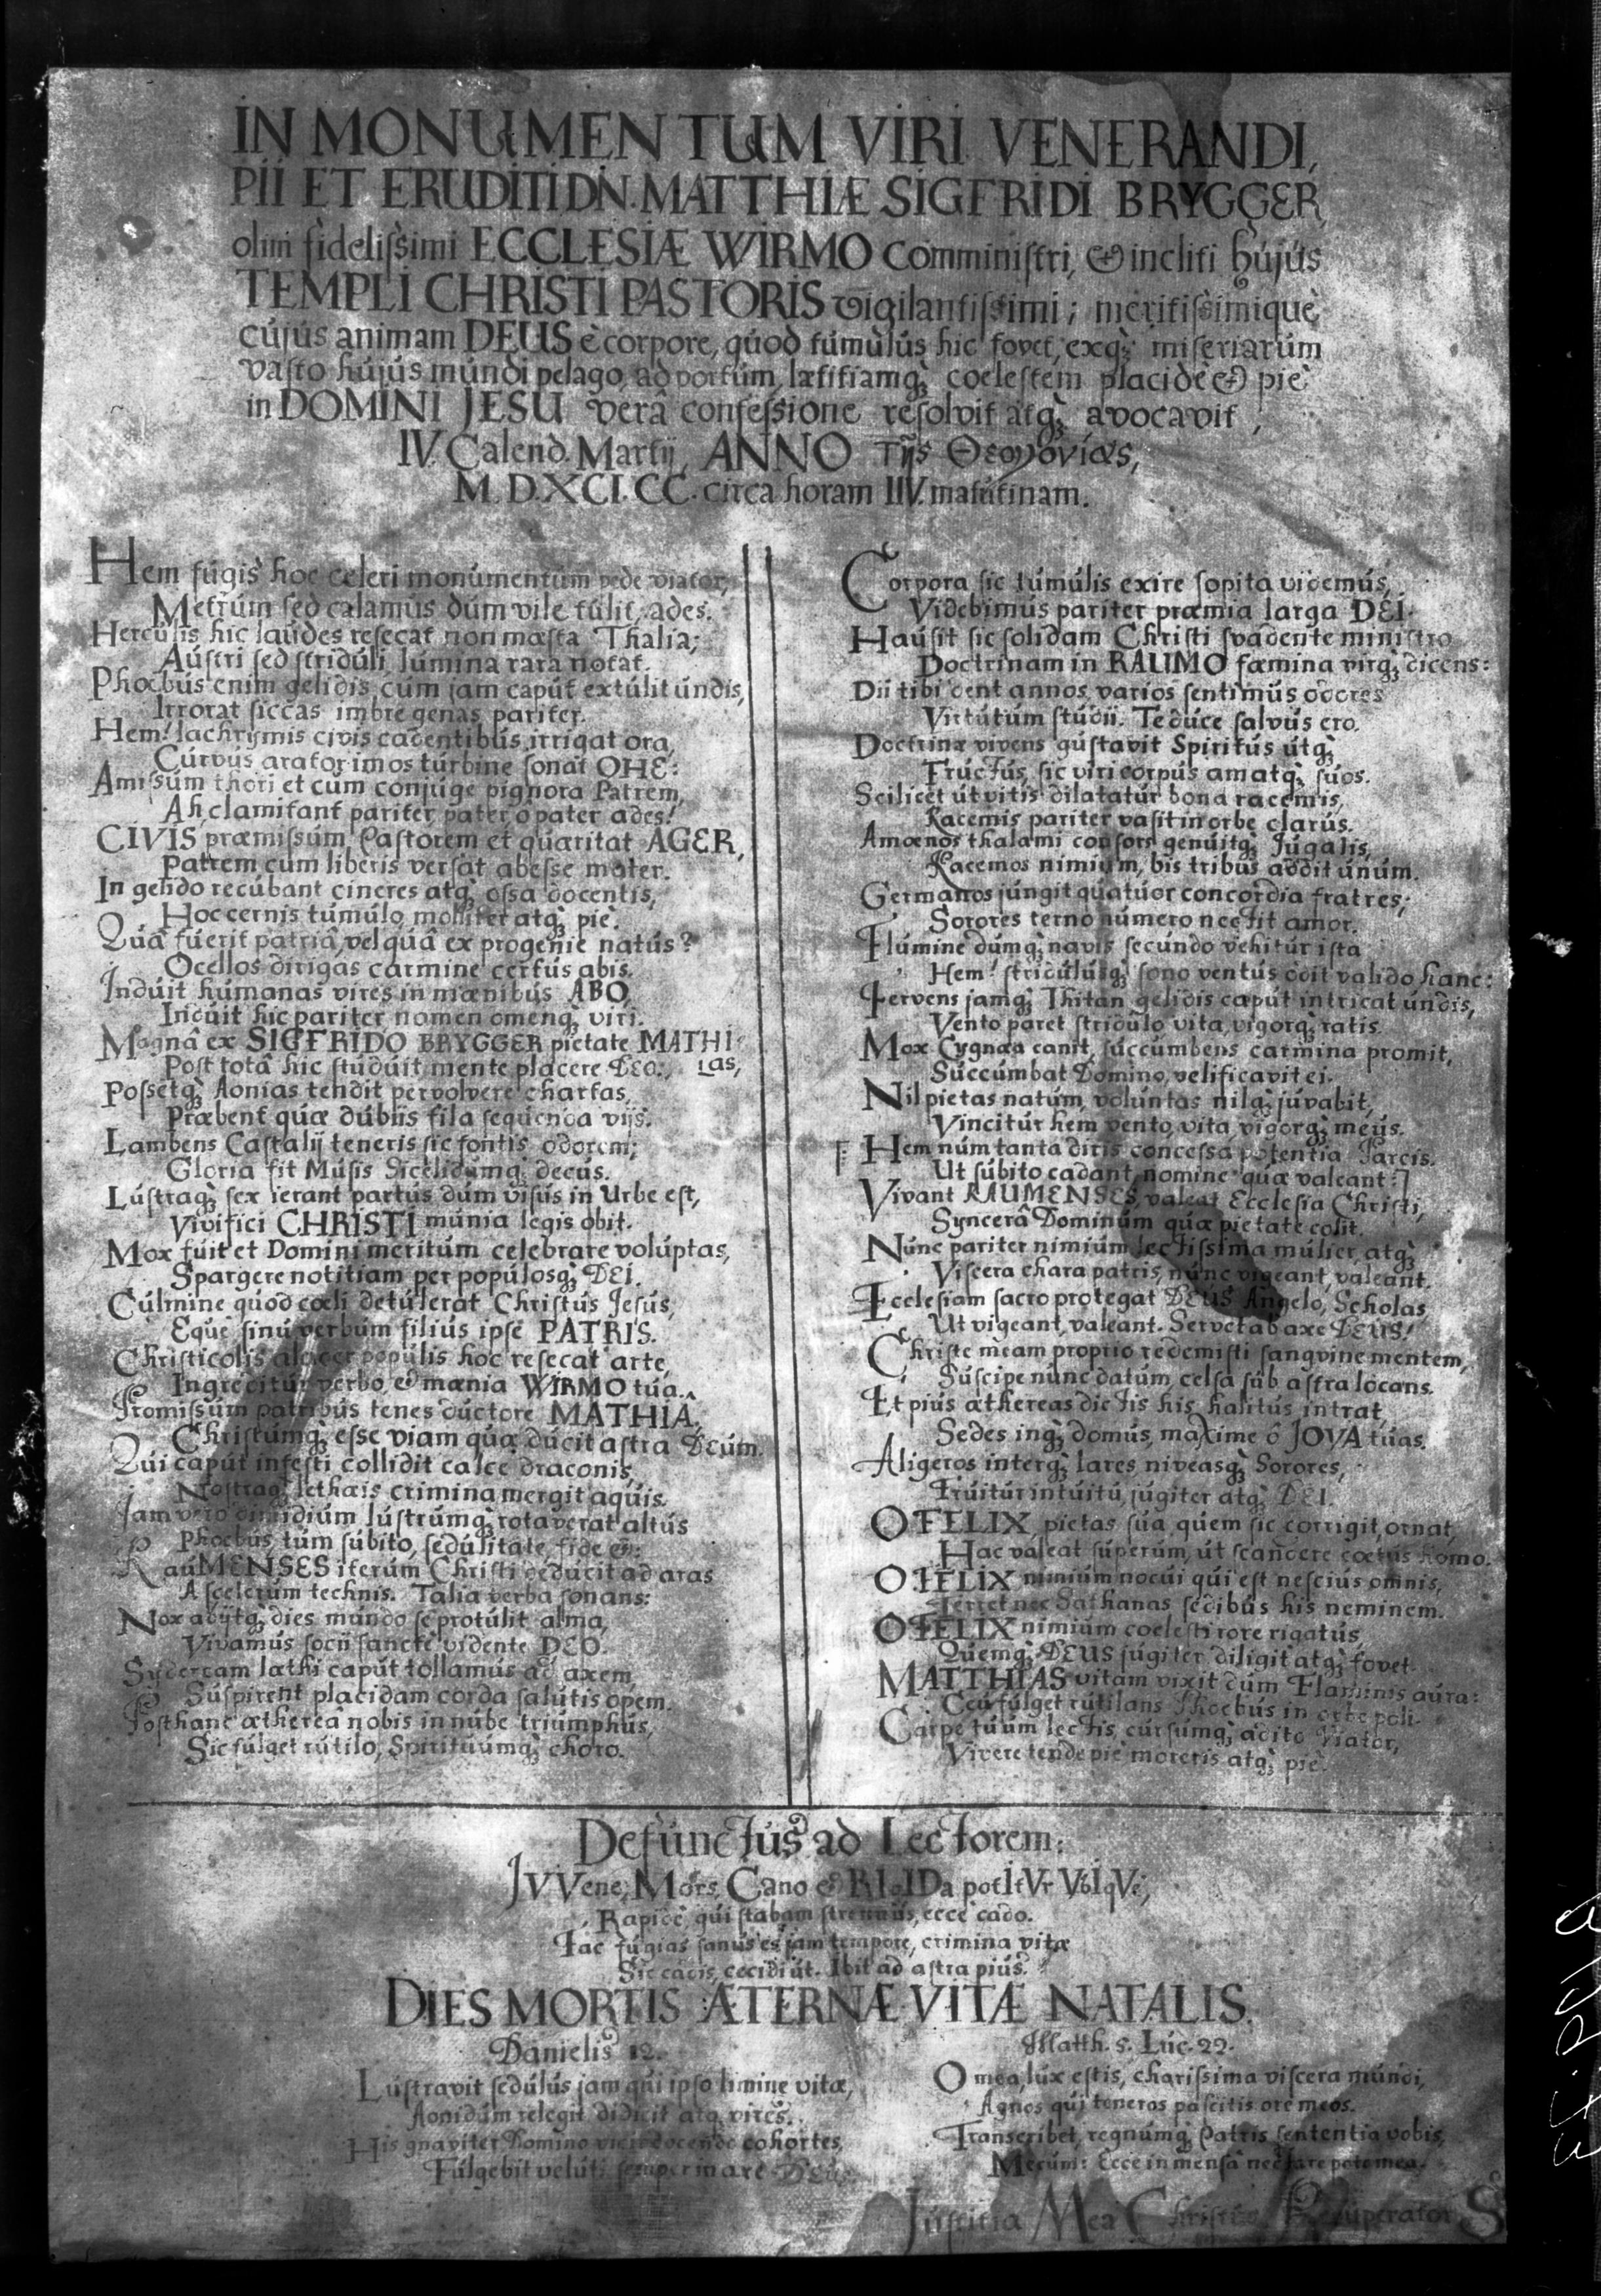 IN MONUMENTUM VIRI VENERANDI,
PII ET ERUDITI DN. MATTHIÆ SIGFRIDI BRYGGER
olim fidelissimi ECCLESIÆ WIRMO Comministri, & incliti hujus
TEMPLI CHRISTI PASTORIS vigilantissimi; meritissimique
cujus animam DEUS è corpore, quod tumulus hic fovet, exq; miseriarum
vasto hujus mundi pelago, ad portum, lætitiamq; coelestem placidè & piè
in DOMINI JESU verâ confessione resolvit atq; avocavit,
IV. Calend. Martij, ANNO τῆς Θεογονίας,
M.D.XCI.CC. circa horam IIV. matutinam.
Hem fugis hoc celeri monumentum pede viator,
Metrum sed calamus dum vile tulit, ades.
Herculis hic laudes resecat non mæsta Thalia;
Austri sed striduli lumina rara notat.
Phœbus enim gelidis cum jam caput extulit undis,
Irrorat siccas imbre genas pariter.
Hem! lachrymis civis cadentibus irrigat ora,
Curvus arator imos turbine sonat OHE:
Amissum thori et cum conjuge pignora Patrem,
Ah clamitant pariter pater o pater ades!
CIVIS præmissum, Pastorem et quæritat AGER,
Patrem cum liberis versat abesse mater.
In gelido recubant cineres atq; ossa docentis,
Hoc cernis tumulo, molliter atq; piè.
Quâ fuerit patriâ, vel quâ ex progenie natus?
Ocellos dirigas carmine certus abis.
Induit humanas vires in mœnibus ABO,
Induit hic pariter nomen omenq; viri.
Magnâ ex SIGFRIDO BRYGGER pietate MATHI-
Post totâ hic studuit mente placere DEO: as,
Possetq; Aonias tendit pervolvere chartas,
Præbent quæ dubiis fila sequenda viis.
Lambens Castalij teneris sic fontis odorem;
Gloria fit Musis Sicelidumq; decus.
Lustraq; sex ierant partus dum visus in Urbe est,
Vivifici CHRISTI munia legis obit.
Mox fuit et Domini meritum celebrare voluptas,
Spargere notitiam per populosq; DEI.
Culmine quod cœli detulerat Christus Jesus,
Eque sinu verbum filius ipse PATRIS.
Christicolis populis hoc resecat arte,
Ingreditur verbo, & mænia WIRMO tua.
Promissum patribus tenes ductore MATHIA,
Christumq; esse viam quæ ducit astra Deum.
Qui caput infesti collidit calce draconis,
Nostraq; lethæis crimina mergit aquis.
Jam vero dimidium lustrumq; rotaverat altus
Phœbus, tum subito, sedulitate, fide
RauMENSES iterum Christi deducit ad aras
A scelerum technis. Talia verba sonans:
Nox abijtq; dies mundo se protulit alma,
Vivamus socii sancte vidente DEO.
Sydeream læthi caput tollamus ad axem,
Suspirent placidam corda salutis opem.
Posthanc æthereâ nobis in nube triumphus,
Sic fulget rutilo, Spirituumq; choro.
Corpora sic tumulis exire sopita videmus,
Videbimus pariter præmia larga DEI.
Hausit sic solidam Christi svadente ministro
Doctrinam in RAUMO fœmina virq; dicens:
Dii tibi dent annos, varios sentimus odores
Virtutum studii. Te duce salvus ero.
Doctrinæ vivens gustavit Spiritus utq;
Fructus, sic viri corpus amatq; suos.
Scilicet ut vitis dilatatur bona racemis,
Racemis pariter vasit in orbe clarus.
Amœnos thalami consors genuitq; Jugalis,
Racemos nimium, bis tribus addit unum.
Germanos jungit quatuor concordia fratres;
Sorores terno numero nectit amor.
Flumine dumq; navis secundo vehitur ista
Hem! stridulusq; sono ventus adit valido hanc:
Fervens jamq; Thitan gelidis caput intricat undis,
Vento paret stridulo vita, vigorq; ratis.
Mox Cygnæa canit, succumbens carmina promit,
Succumbat Domino, velificavit ei.
Nil pietas natum, voluntas nilq; juvabit,
Vincitur hem vento, vita, vigorq; meus.
Hem num tanta diris concessa potentia Parcis,
Ut subito cadant, nomine quæ valeant?]
Vivant RAUMENSES, valeat Ecclesia Christi,
Syncerâ Dominum quæ pietate colit.
Nunc pariter nimium lectissima mulier, atq;
Viscera chara patris, nunc vigeant, valeant.
Ecclesiam sacro protegat DEUS Angelo, Scholas,
Ut vigeant, valeant. Servet ab axe DEUS!
Christe meam proprio redemisti sangvine mentem,
Suscipe nunc datum, celsa sub astra locans.
Et pius æthereas dictis his, halitus intrat,
Sedes inq; domus, maxime ô JOVA tuas.
Aligeros interq; lares, niveasq; Sorores,
Fruitur intuitu, jugiter atq; DEI.
O FELIX, pietas sua quem sic corrigit, ornat,
Hac valeat superum, ut scandere cœtus homo.
O FELIX nimium nocui qui est nescius omnis,
Terret nec Sathanas sedibus his neminem.
O FELIX nimium coelesti rore rigatus,
Quemq; DEUS jugiter diligit atq; fovet.
MATTHIAS vitam vixit dum Flaminis aura:
Ceu fulget rutilans Phoebus in orbe poli.
Carpe tuum lectis, cursumq; adito Viator,
Vivere tende piè moreris atq; piè.
Defunctus ad Lectorem:
JVVene; Mors, Cano & RIgIDa potItVr VbIqVe;
Rapidè, qui stabam strenuus, ecce cado.
Fac fugias sanus es jam tempore, crimina vitæ
Sic cadis, cecidi ut. Ibit ad astra pius.
DIES MORTIS ÆTERNÆ VITÆ NATALIS.
Danielis 12.
Lustravit sedulus jam qui ipso limine vitæ,
Aonidum relegit didicit atq; vires.
His gnaviter Domino vicit docendo cohortes,
Fulgebit veluti semper in axe DEUS.
Matth. 5. Luc. 22.
O mea, lux estis, charissima viscera mundi,
Agnos qui teneros pascitis ore meos.
Transcribet, regnumq; Patris sententia vobis,
Mecum: Ecce in mensâ nectare pote mea.
Justitia Mea Christus Recuperator S